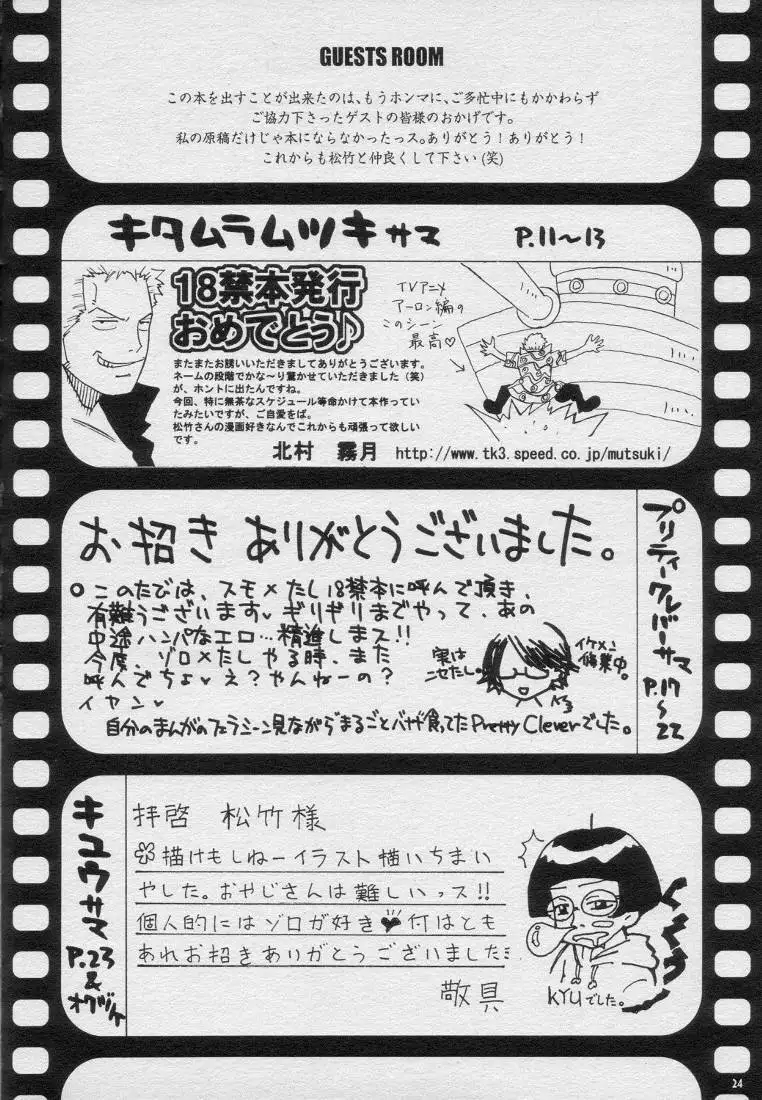 GUESTS ROOM
この本を出すことが出来たのは、もうホンマに、ご多忙中にもかかわらず
ご協力下さったゲストの皆様のおかげです。
私の原稿だけじゃ本にならなかったっス。ありがとう!ありがとう!
これからも松竹と仲良くして下さい(笑)
キタムラムツキサマ P.11〜13
18禁本発行
おめでとう♪
TVアニメ
アーロン編の
このシーン
最高♡
またまたお誘いいただきましてありがとうございます。
ネームの段階でかな〜り驚かせていただきました(笑)
が、ホントに出たんですね。
今回、特に無茶なスケジュール等命かけて本作ってい
たみたいですが、ご自愛をば。
松竹さんの漫画好きなんでこれからも頑張って欲しい
です。
北村 霧月 http://www.tk3.speed.co.jp/mutsuki/
お招きありがとうございました。
このたびは、スモ×たし18禁本に呼んで頂き、
有難うございます♥ギリギリまでやって、あの
中途ハンパなエロ…精進しまス!!
今度、ゾロ×たしやる時、また
呼んでちょ♥え?やんねーの?
イヤン♥
実は
ニセたし。
イケメン
修業中。
自分のまんがのフェラシーン見ながらまるごとバナナ食ってたPretty Cleverでした。
プリティークレバーサマ
P.17〜22
キユウサマ
P.23&オクヅケ
拝啓 松竹様
描けもしねーイラスト描いちまい
やした。おやじさんは難しいっス!!
個人的にはゾロが好き♥付はとも
あれお招きありがとうございました
敬具
KYUでした。
24